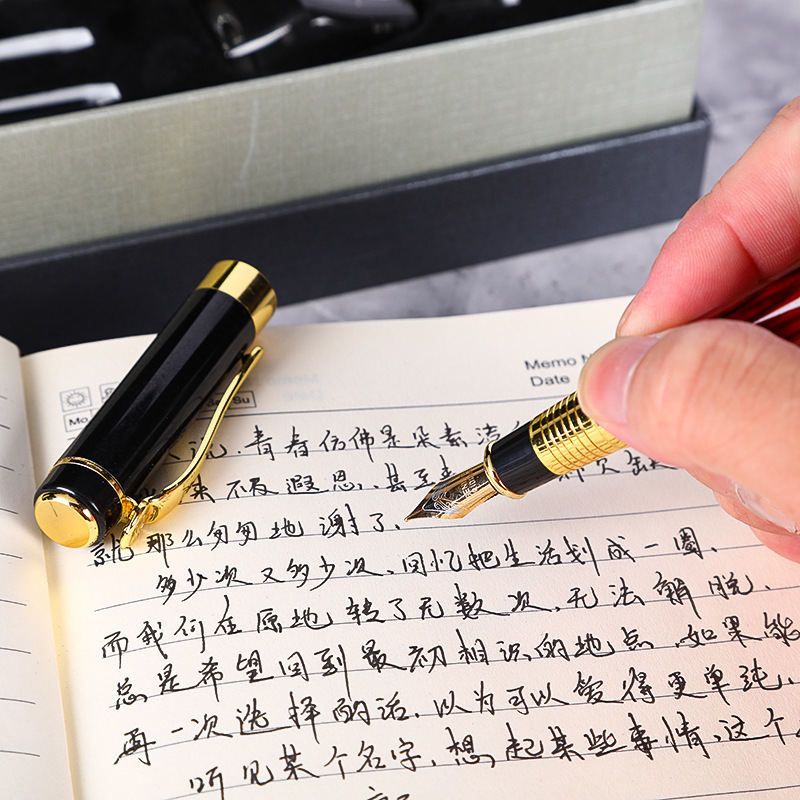 Memo N
Date
Mo Su
说，青春仿佛是朵素洁
来不及遐思，甚至
就那么匆匆地谢了，
多少次又多少次，回忆把生活划成一圈，
而我们在原地转了无数次，无法解脱，
总是希望回到最初相识的地点，如果能
再一次选择的话，以为可以爱得更单纯，
听见某个名字，想起某些事情，这个